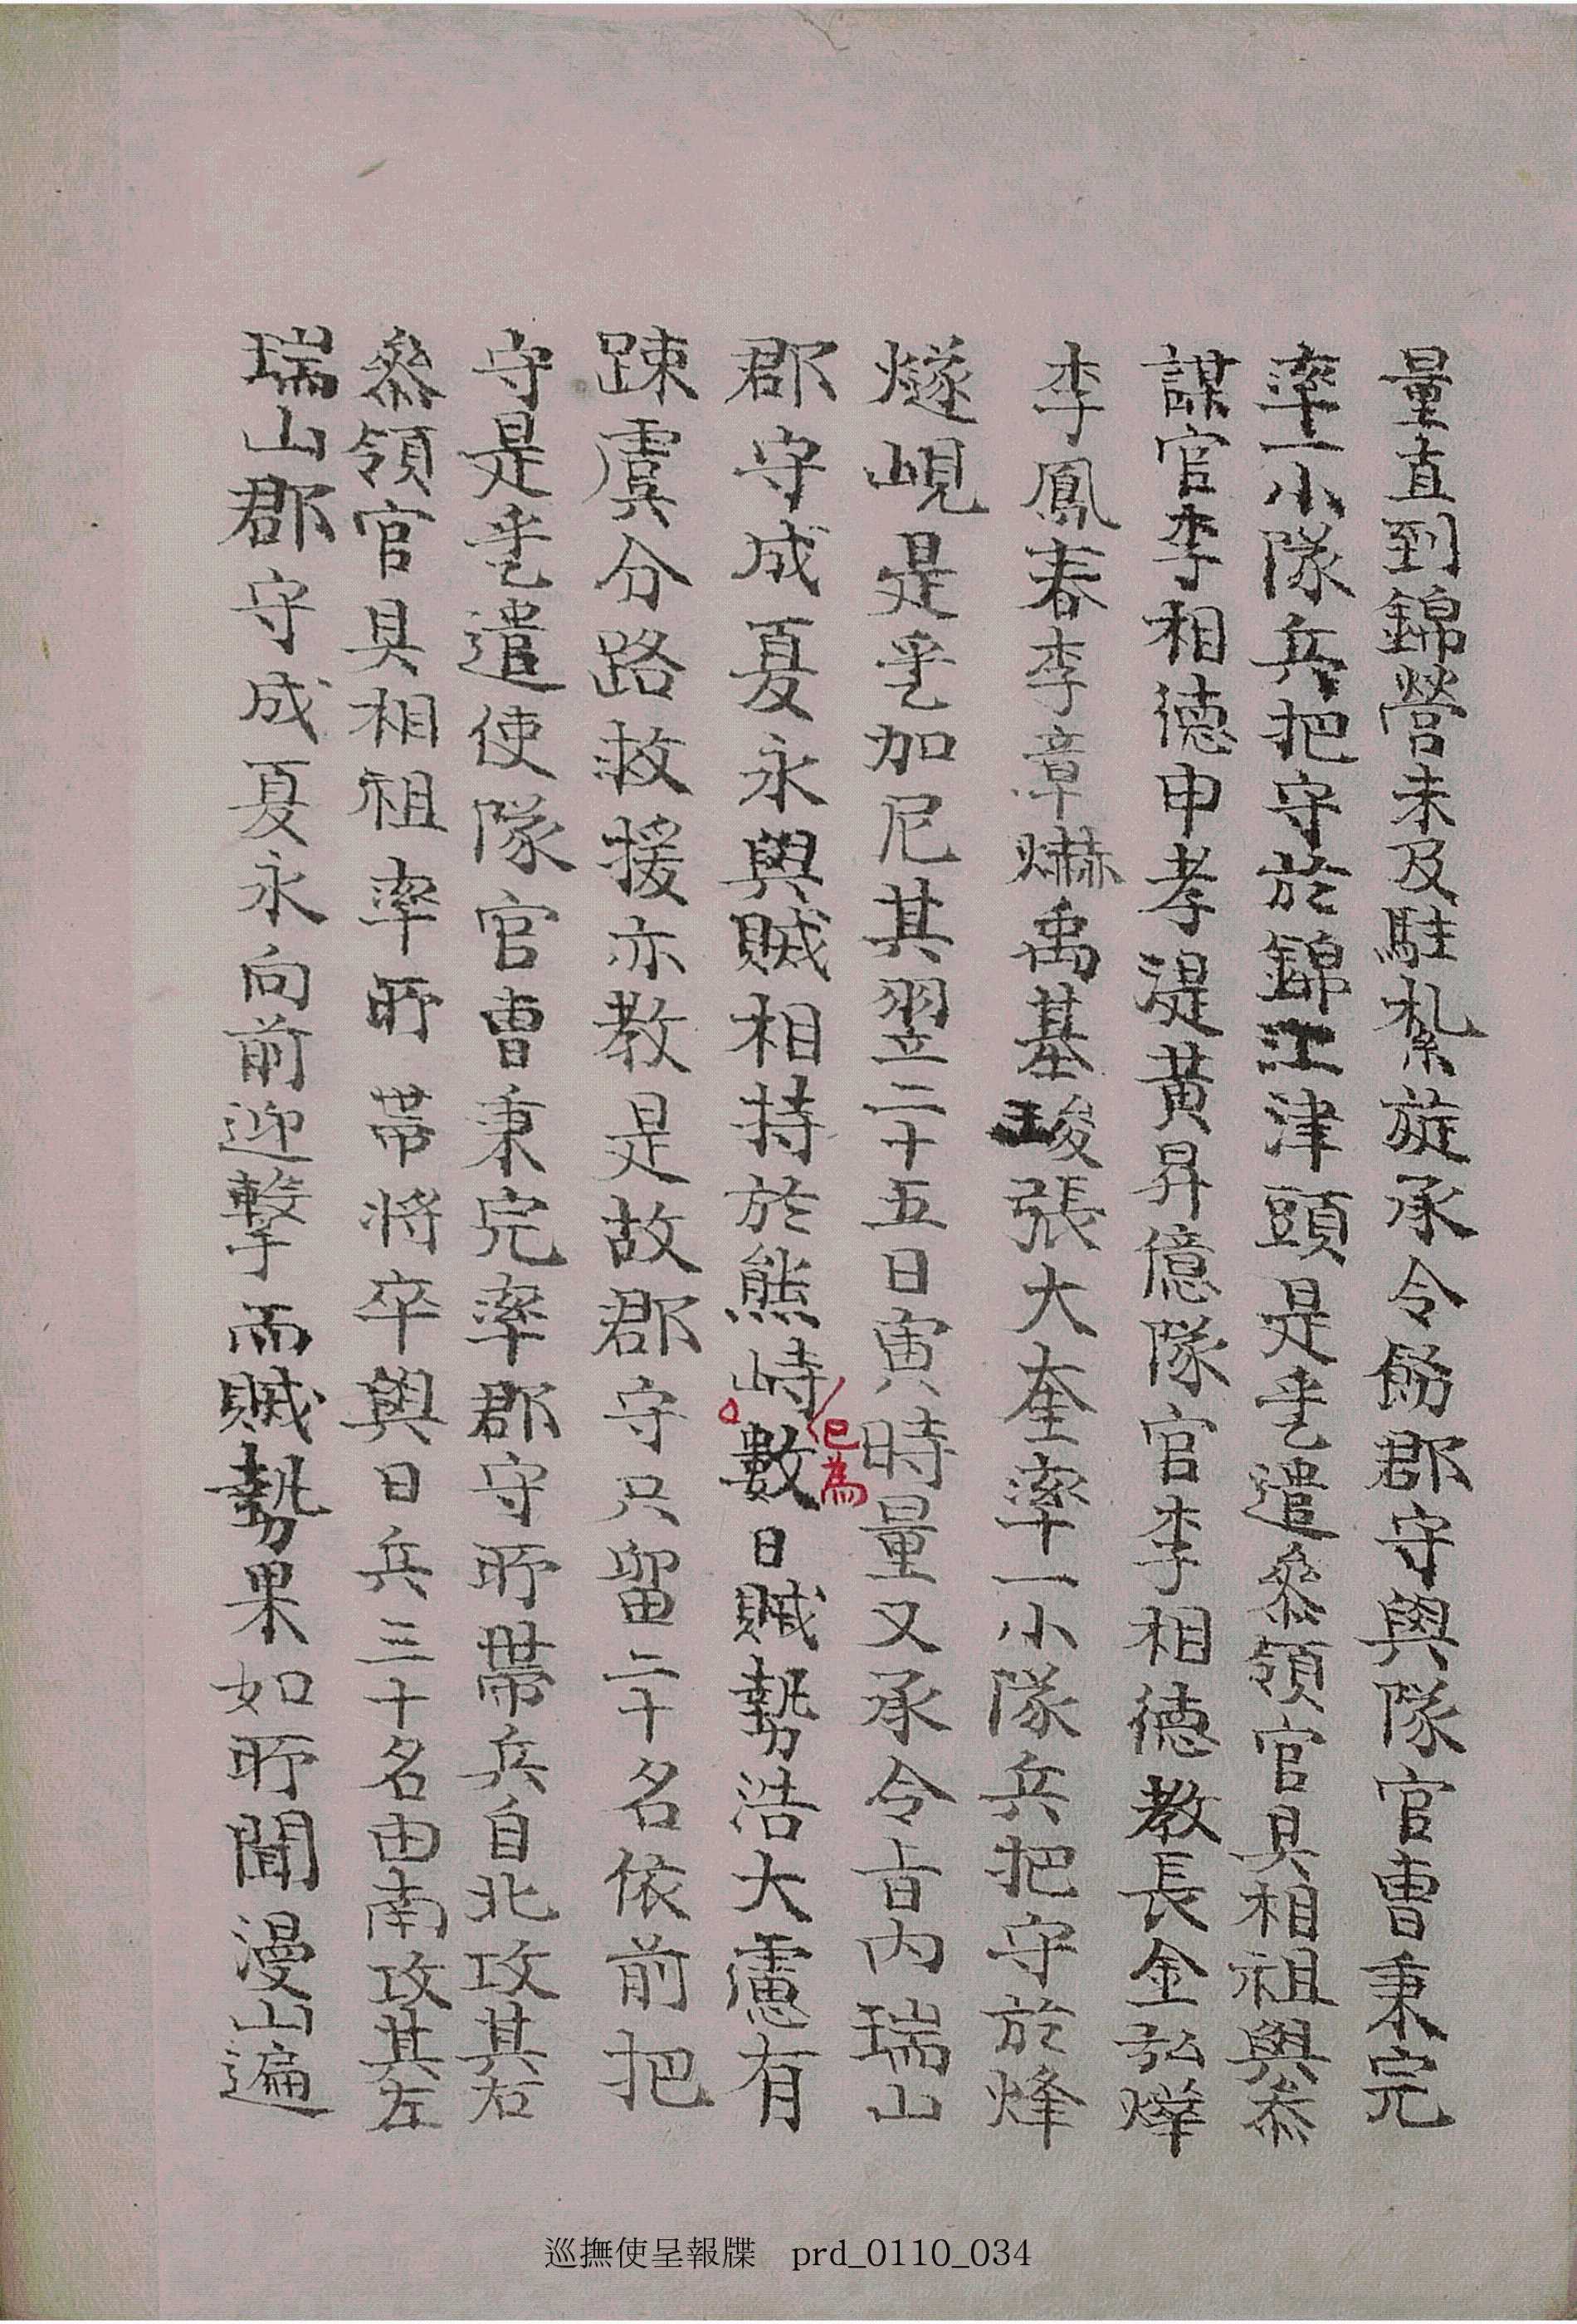 量直到錦營未及駐紮旋承令飭郡守與隊官曹秉完
率一小隊兵把守於錦江津頭是乎遣叅領官具相祖與叅
謀官李相德申孝湜黃昇億隊官李相德教長金弘燁
李鳳春李章爀禹基埈張大奎率一小隊兵把守於烽
燧峴是乎加尼其翌二十五日寅時量又承令旨內瑞山
郡守成夏永與賊相持於熊峙數日賊勢浩大慮有
已爲
踈虞分路救援亦教是故郡守只留二十名依前把
守是乎遣使隊官曹秉完率郡守所帶兵自北攻其右
叅領官具相祖率所帶將卒與日兵三十名由南攻其左
瑞山郡守成夏永向前迎擊而賊勢果如所聞漫山遍
巡撫使呈報牒 prd_0110_034